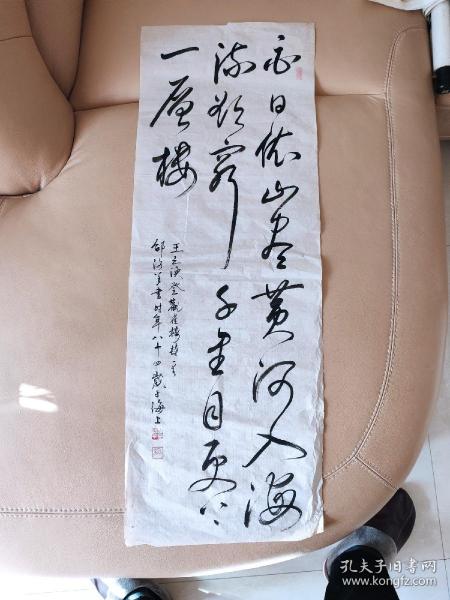 白日依山尽黄河入海
流欲穷千里目更上
一层楼
王之涣登观雀楼诗一首
邹 书时年八十四岁于海上
孔夫子旧书网
www.kongfz.com